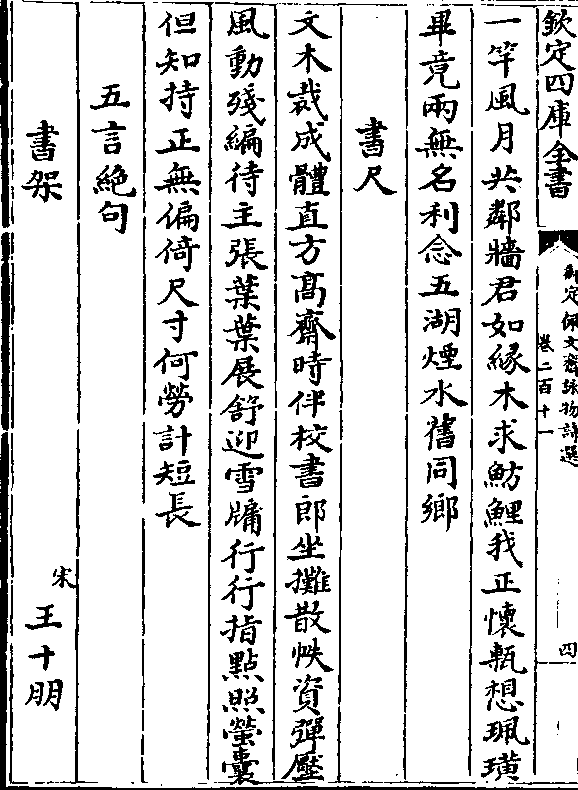 欽定四庫全書
御定佩文齋詠物詩選
卷二百十一
四
一竿風月共鄰牆君如緣木求魴鯉我正懷甎想珮璜
畢竟兩無名利念五湖煙水舊同鄉
書尺
文木裁成體直方高齋時伴校書郎坐攤散帙資彈壓
風動殘編待主張葉葉展舒迎雪牗行行指點照螢囊
但知持正無偏倚尺寸何勞計短長
五言絶句
書架
宋
王十朋